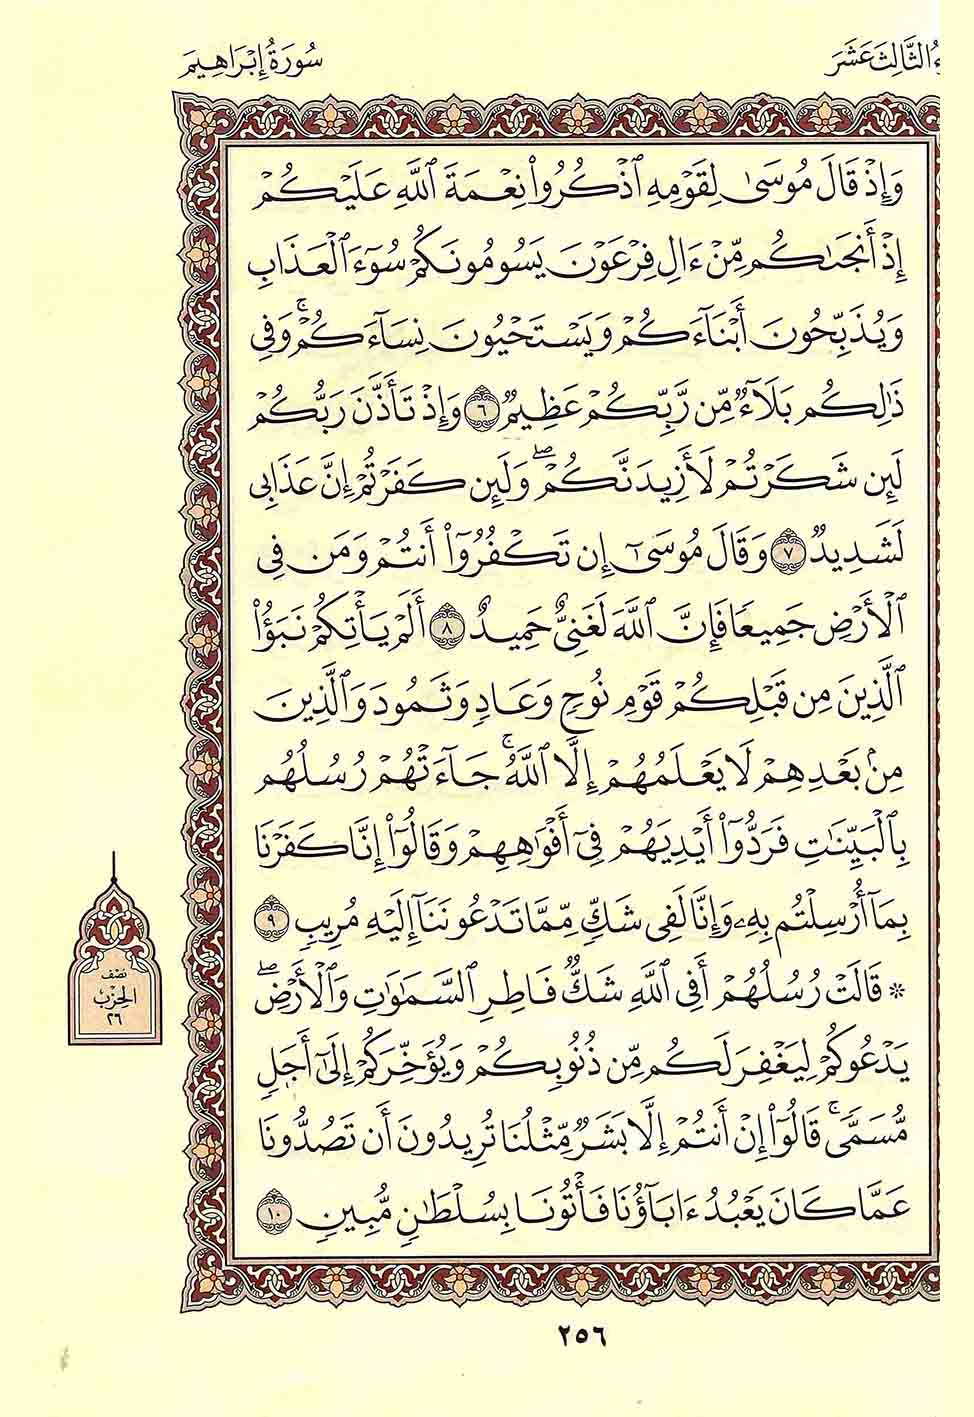 ءُ الثَّالِثَ عَشَرَ
سُورَةُ إِبْرَاهِيمَ
وَإِذْ قَالَ مُوسَىٰ لِقَوْمِهِ ٱذْكُرُوا۟ نِعْمَةَ ٱللَّهِ عَلَيْكُمْ
إِذْ أَنجَىٰكُم مِّنْ ءَالِ فِرْعَوْنَ يَسُومُونَكُمْ سُوٓءَ ٱلْعَذَابِ
وَيُذَبِّحُونَ أَبْنَآءَكُمْ وَيَسْتَحْيُونَ نِسَآءَكُمْ ۚ وَفِى
ذَٰلِكُم بَلَآءٌ مِّن رَّبِّكُمْ عَظِيمٌ ٦ وَإِذْ تَأَذَّنَ رَبُّكُمْ
لَئِن شَكَرْتُمْ لَأَزِيدَنَّكُمْ ۖ وَلَئِن كَفَرْتُمْ إِنَّ عَذَابِى
لَشَدِيدٌ ٧ وَقَالَ مُوسَىٰٓ إِن تَكْفُرُوٓا۟ أَنتُمْ وَمَن فِى
ٱلْأَرْضِ جَمِيعًا فَإِنَّ ٱللَّهَ لَغَنِىٌّ حَمِيدٌ ٨ أَلَمْ يَأْتِكُمْ نَبَؤُا۟
ٱلَّذِينَ مِن قَبْلِكُمْ قَوْمِ نُوحٍ وَعَادٍ وَثَمُودَ وَٱلَّذِينَ
مِنۢ بَعْدِهِمْ لَا يَعْلَمُهُمْ إِلَّا ٱللَّهُ ۚ جَآءَتْهُمْ رُسُلُهُم
بِٱلْبَيِّنَٰتِ فَرَدُّوٓا۟ أَيْدِيَهُمْ فِىٓ أَفْوَٰهِهِمْ وَقَالُوٓا۟ إِنَّا كَفَرْنَا
بِمَآ أُرْسِلْتُم بِهِۦ وَإِنَّا لَفِى شَكٍّ مِّمَّا تَدْعُونَنَآ إِلَيْهِ مُرِيبٍ ٩
* قَالَتْ رُسُلُهُمْ أَفِى ٱللَّهِ شَكٌّ فَاطِرِ ٱلسَّمَٰوَٰتِ وَٱلْأَرْضِ ۖ
يَدْعُوكُمْ لِيَغْفِرَ لَكُم مِّن ذُنُوبِكُمْ وَيُؤَخِّرَكُمْ إِلَىٰٓ أَجَلٍ
مُّسَمًّى ۚ قَالُوٓا۟ إِنْ أَنتُمْ إِلَّا بَشَرٌ مِّثْلُنَا تُرِيدُونَ أَن تَصُدُّونَا
عَمَّا كَانَ يَعْبُدُ ءَابَآؤُنَا فَأْتُونَا بِسُلْطَٰنٍ مُّبِينٍ ١٠
نِصْف
الحِزْب
٢٦
٢٥٦